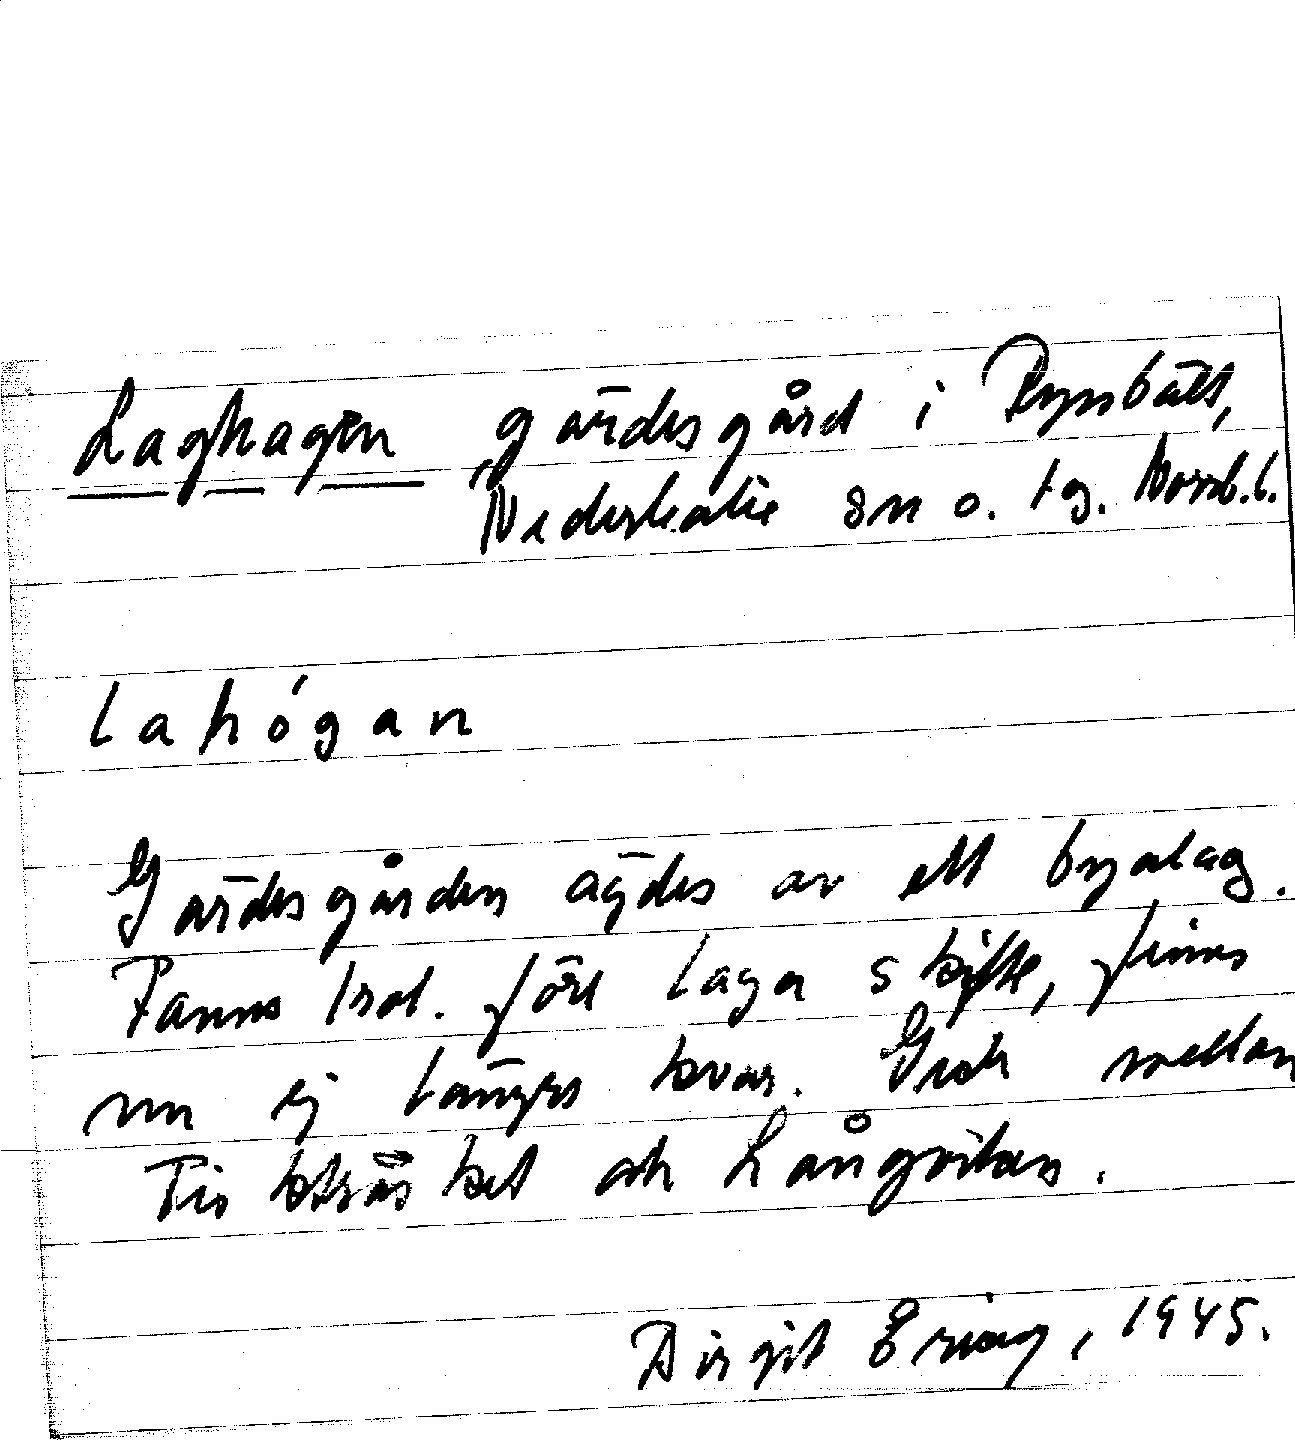 Laghagen, gärdesgård i Rynbäck,
Nederkalix sn o. tg. Norrb. l.
lahógan
Gärdesgården ägdes av ett byalag.
Fanns trol. före laga skifte, finns
nu ej längre kvar. Gick mellan
Fiskträsket och Långviken.
Birgit Ering, 1945.